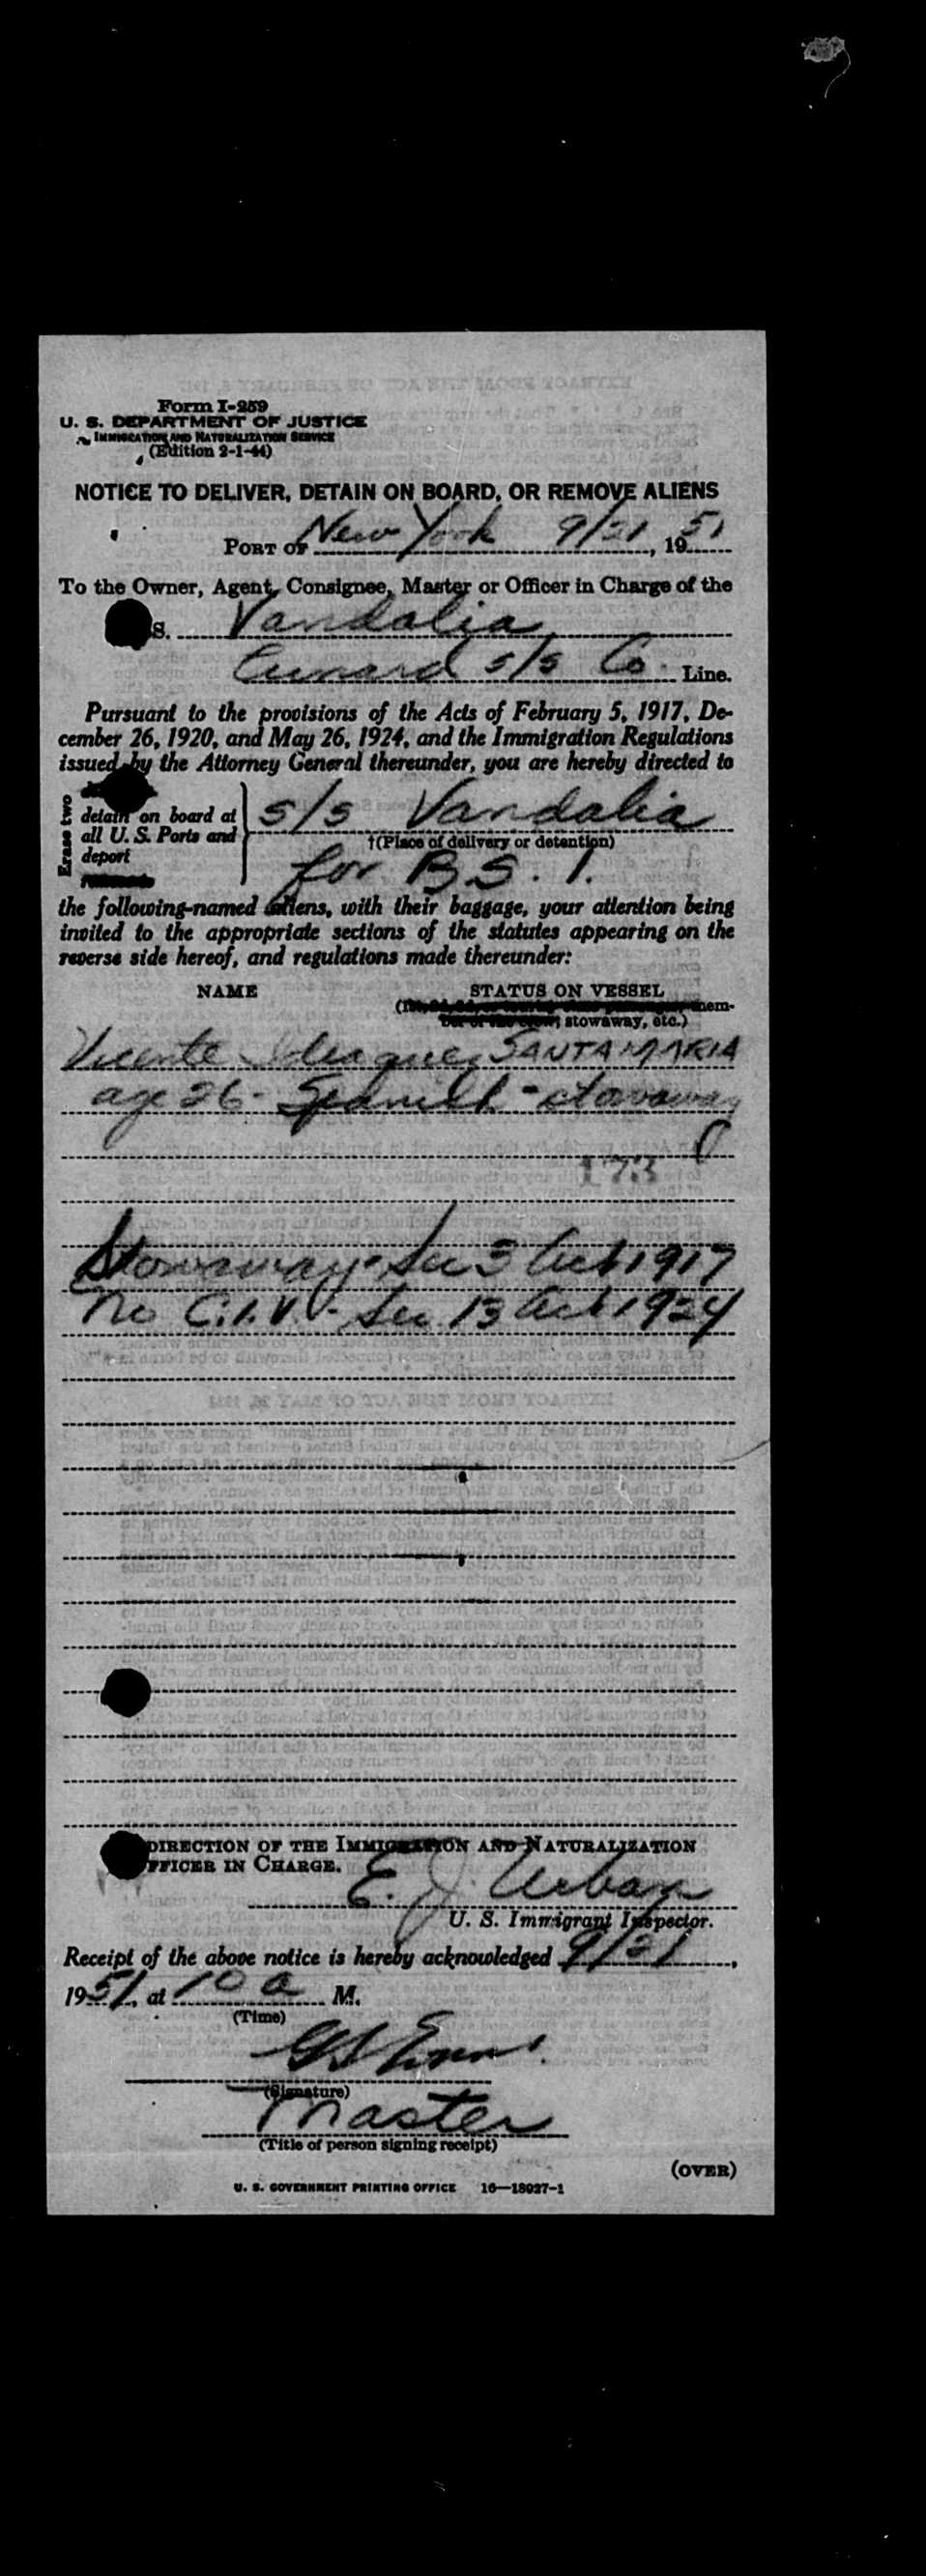 Form I-259
U. S. DEPARTMENT OF JUSTICE
IMMIGRATION AND NATURALIZATION SERVICE
(Edition 2-1-44)
NOTICE TO DELIVER, DETAIN ON BOARD, OR REMOVE ALIENS
PORT OF New York 9/21, 1951
To the Owner, Agent, Consignee, Master or Officer in Charge of the
S. Vandalia
Cunard S/S Co. Line.
Pursuant to the provisions of the Acts of February 5, 1917, De-
cember 26, 1920, and May 26, 1924, and the Immigration Regulations
issued by the Attorney General thereunder, you are hereby directed to
Erase two
detain on board at
all U. S. Ports and
deport
S/S Vandalia
†(Place of delivery or detention)
for B.S.I.
the following-named aliens, with their baggage, your attention being
invited to the appropriate sections of the statutes appearing on the
reverse side hereof, and regulations made thereunder:
NAME STATUS ON VESSEL
mem-
stowaway, etc.)
Vicente SANTAMARIA
age 26 - Spanish - stowaway
173
Stowaway - Sec 3 Act 1917
No C.I.V. - Sec 13 Act 1924
DIRECTION OF THE IMMIGRATION AND NATURALIZATION
OFFICER IN CHARGE.
E. J. Urban
U. S. Immigrant Inspector.
Receipt of the above notice is hereby acknowledged 9/21,
1951, at 10 a M.
(Time)
(Signature)
Master
(Title of person signing receipt)
(OVER)
U. S. GOVERNMENT PRINTING OFFICE 16—18027-1